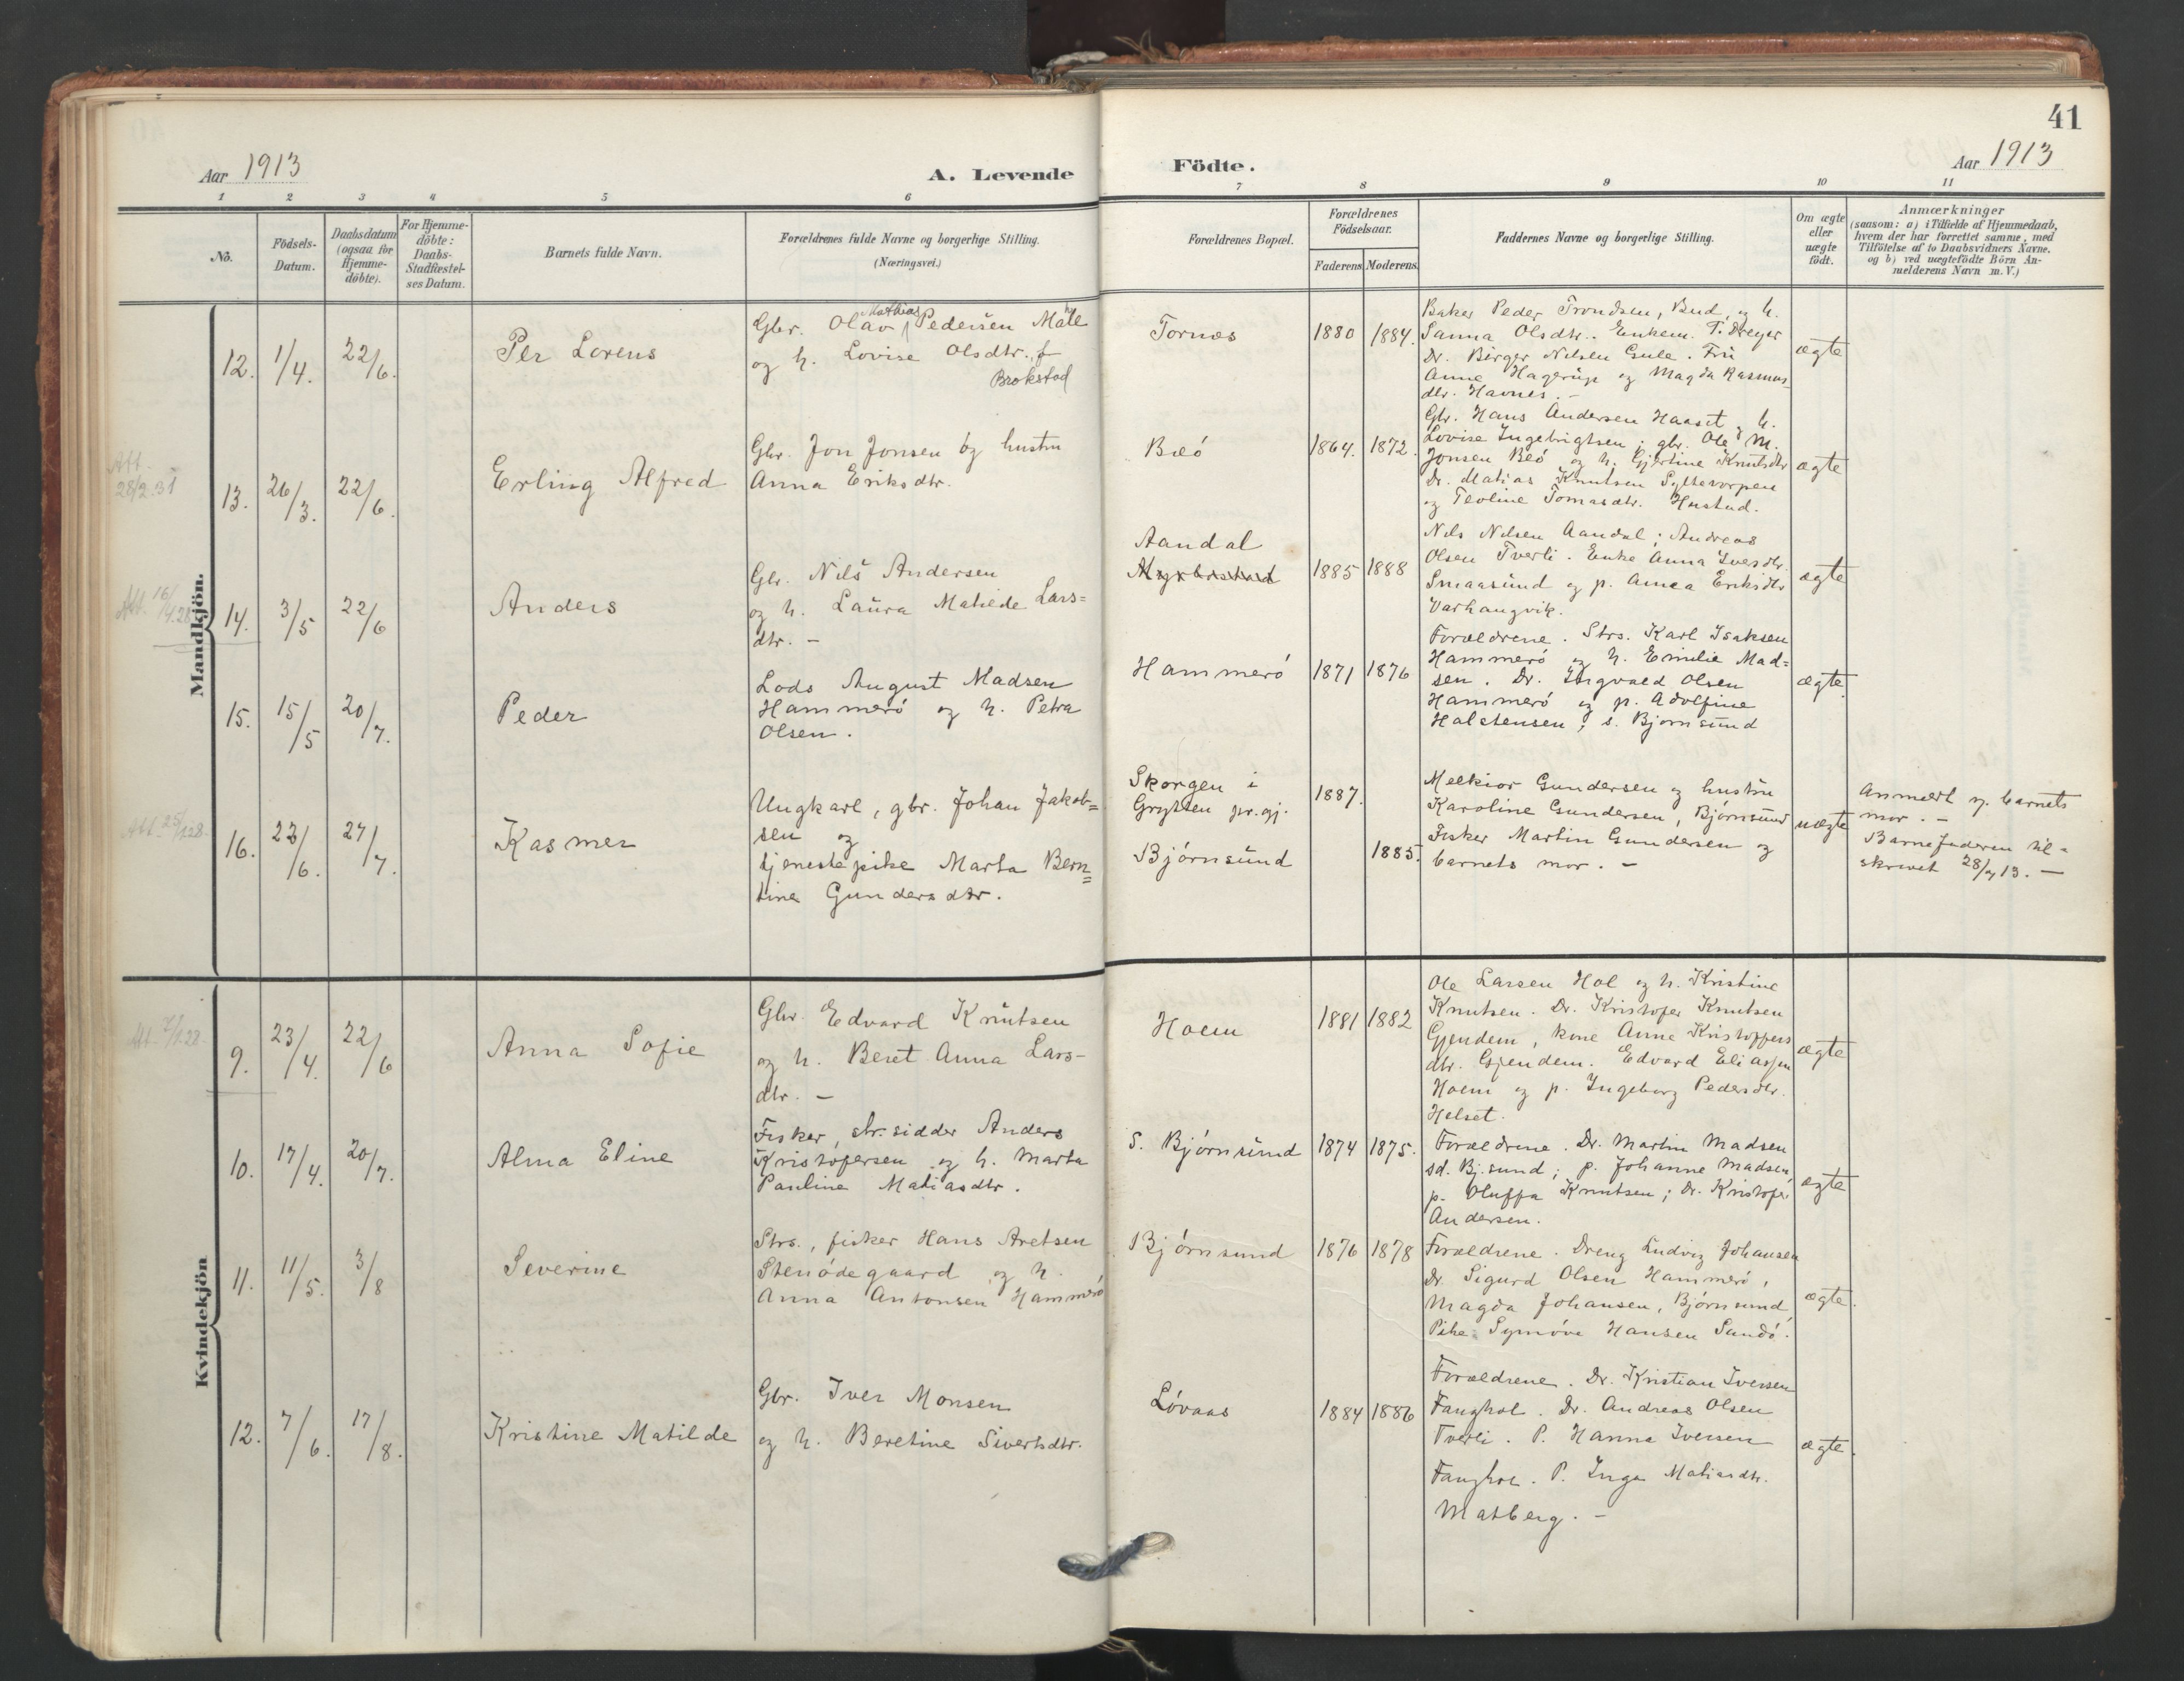 41
Aar 1913
A. Levende
Födte.
Aar 1913
1 2 3 4 5 6 7 8 9 10 11
No.
Födsels-
Datum.
Daabsdatum
(ogsaa for
Hjemme-
döbte).
For Hjemme-
döbte:
Daabs-
Stadfæstel-
ses Datum.
Barnets fulde Navn.
Forældrenes fulde Navne og borgerlige Stilling.
(Næringsvei.)
Forældrenes Bopæl.
Forældrenes
Födselsaar.
Faderens. Moderens.
Faddernes Navne og borgerlige Stilling.
Om ægte
eller
uægte
födt.
Anmærkninger
(saasom: a) i Tilfælde af Hjemmedaab,
hvem der har forrettet samme, med
Tilföielse af to Daabsvidners Navne.
og b) ved uægtefödte Börn An-
melderens Navn m. V.)
Mandkjön.
12. 1/4. 22/6.
Per Lorens
Mathias
Gbr. Olav Pedersen Male
og h. Lovise Olsdtr. f
Brokstad
Tornes
1880 1884.
Baker Peder Trondsen, Bud, og h.
Sanna Olsdtr. Enkem. T. Dreyer
Dr. Birger Nilsen Gule. Fru
Anne Hagerup og Magda Rasmus-
dtr. Havnes. -
ægte
Att.
28/2.31
13. 26/3. 22/6.
Erling Alfred
Gbr. Jon Jonsen og hustru
Anna Eriksdtr.
Beó
1864. 1872.
Gbr. Hans Andersen Haaset og h.
Lovise Ingebrigtsen; gbr. Ole M.
Jonsen Beó og h. Gjertine Knutsdtr
Dr. Matias Knutsen
og Teoline Tomasdtr. Hustad.
ægte
Att. 16/4.28
14. 3/5 22/6
Anders
Gbr. Nils Andersen
og h. Laura Matilde Lars=
dtr. -
Aandal
1885 1888
Nils Nilsen Aandal; Andreas
Olsen Tverli. Enke Anna Iversdtr.
Smaasund og p. Anna Eriksdtr
Varhaugvik.
ægte
15. 15/5 20/7.
Peder
Lods August Madsen
Hammeró og h. Petra
Olsen.
Hammeró
1871 1876
Forældrene. Strs. Karl Isaksen
Hammeró og h. Emilie Mad=
sen. Dr. Ingvald Olsen
Hammeró og p. Adolfine
Halstensen, s. Bjornsund
ægte.
Att. 25/1.28.
16. 23/6. 27/7.
Kasmer
Ungkarl, gbr. Johan Jakob=
sen og
tjenestepike Marta Bern=
tine Gundersdtr.
Skorgen i
Grytten pr.gj.
Bjórnsund
1887.
1885.
Melkior Gundersen og hustru
Karoline Gundersen, Bjórnsund
Fisker Martin Gundersen og
barnets mor. -
uægte
Anmeldt og. barnets
mor. -
Barnefaderen til=
skrevet 28/7 13. -
Kvindekjön
Att. 7/1.28.
9. 23/4. 22/6
Anna Sofie
Gbr. Edvard Knutsen
og h. Beret Anna Lars-
dtr. -
Hoem
1881 1882
Ole Larsen Hol og h. Kristine
Knutsen. Dr. Kristofer Knutsen
Gjendem, kone Anne Kristoffers
dtr. Gjendem. Edvard Eliassen
Hoem og p. Ingeborg Pedersdtr.
Helset.
ægte
10. 17/4. 20/7.
Alma Eline
Fisker, str.sidder Anders
Kristofersen og h. Marta
Pauline Matiasdtr.
S. Bjórnsund
1874 1875.
Forældrene. Dr. Martin Madsen
sd. Bj.sund; p. Johanne Madsen,
p. Oluffa Knutsen; Dr. Kristofer
Andersen.
ægte
11. 11/5. 3/8
Severine
Strs., fisker Hans Aretsen
Stenódegaard og h.
Anna Antonsen Hammeró
Bjórnsund
1876 1878
Forældrene. Dreng Ludvig Johansen
Dr. Sigurd Olsen Hammeró,
Magda Johansen, Bjórnsund,
Pike Synnóve Hansen Sandó.
ægte.
12. 7/6. 17/8.
Kristine Matilde
Gbr. Iver Monsen
og h. Beretine Sivertsdtr.
Lóvaas
1884 1886
Forældrene. Dr. Kristian Iversen
Fanghol. Dr. Andreas Olsen
Tverli. P. Hanna Iversen
Fanghol. P. Inga Matiasdtr.
Malberg. -
ægte.